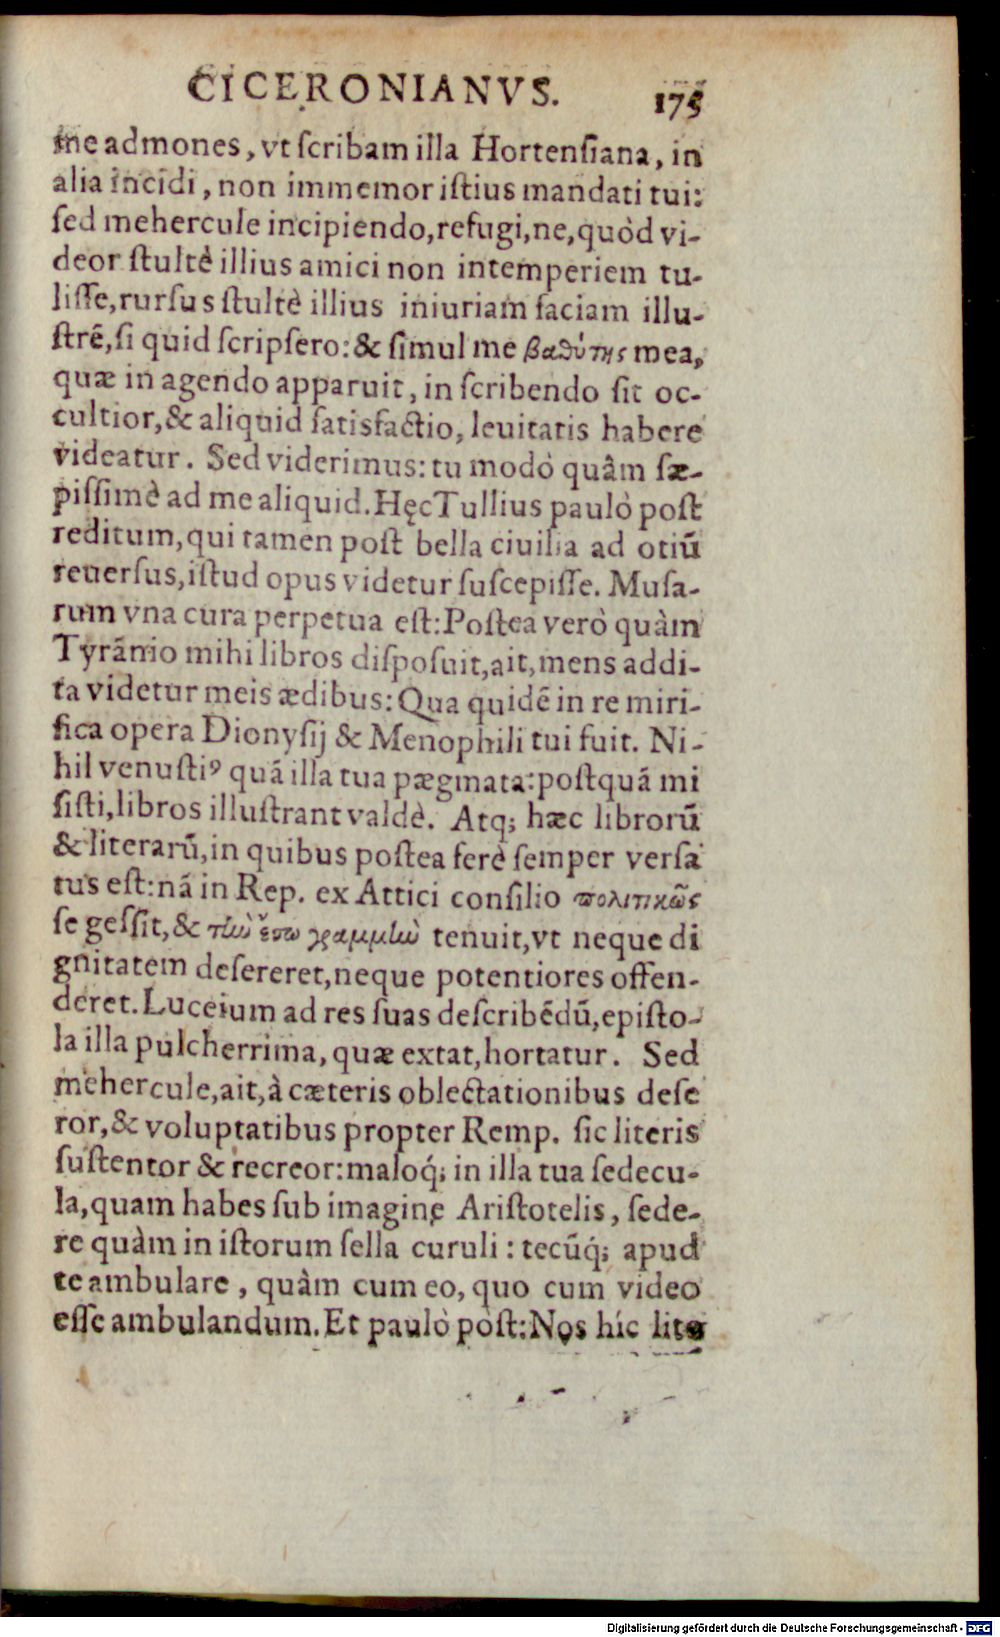 CICERONIANVS. 175
me admones, vt ſcribam illa Hortenſiana, in
alia incidi, non immemor iſtius mandati tui:
ſed mehercule incipiendo, refugi, ne, quòd vi-
deor ſtultè illius amici non intemperiem tu-
liſſe, rurſus ſtultè illius iniuriam faciam illu-
ſtrẽ, ſi quid ſcripſero: & ſimul me βαθύτης mea,
quæ in agendo apparuit, in ſcribendo ſit oc-
cultior, & aliquid ſatisfactio, leuitatis habere
videatur. Sed viderimus: tu modò quâm ſæ-
piſſimè ad me aliquid. Hęc Tullius paulò poſt
reditum, qui tamen poſt bella ciuilia ad otiũ
reuerſus, iſtud opus videtur ſuſcepiſſe. Muſa-
rum vna cura perpetua eſt: Poſtea verò quàm
Tyrãnio mihi libros diſpoſuit, ait, mens addi-
ta videtur meis ædibus: Qua quidẽ in re miri-
fica opera Dionyſij & Menophili tui fuit. Ni-
hil venuſtiꝰ quã illa tua pægmata: poſtquã mi
ſiſti, libros illuſtrant valdè. Atq; hæc librorũ
& literarũ, in quibus poſtea ferè ſemper verſa
tus eſt: nã in Rep. ex Attici conſilio πολιτικῶς
ſe geſſit, & τὴν ἔσω γραμμὴν tenuit, vt neque di
gnitatem deſereret, neque potentiores offen-
deret. Luceium ad res ſuas deſcribẽdũ, epiſto-
la illa pulcherrima, quæ extat, hortatur. Sed
mehercule, ait, à cæteris oblectationibus deſe
ror, & voluptatibus propter Remp. ſic literis
ſuſtentor & recreor: maloq́; in illa tua ſedecu-
la, quam habes ſub imagine Ariſtotelis, ſede-
re quàm in iſtorum ſella curuli: tecũq́; apud
te ambulare, quàm cum eo, quo cum video
eſſe ambulandum. Et paulò pòſt: Nos híc lite
Digitalisierung gefördert durch die Deutsche Forschungsgemeinschaft - DFG